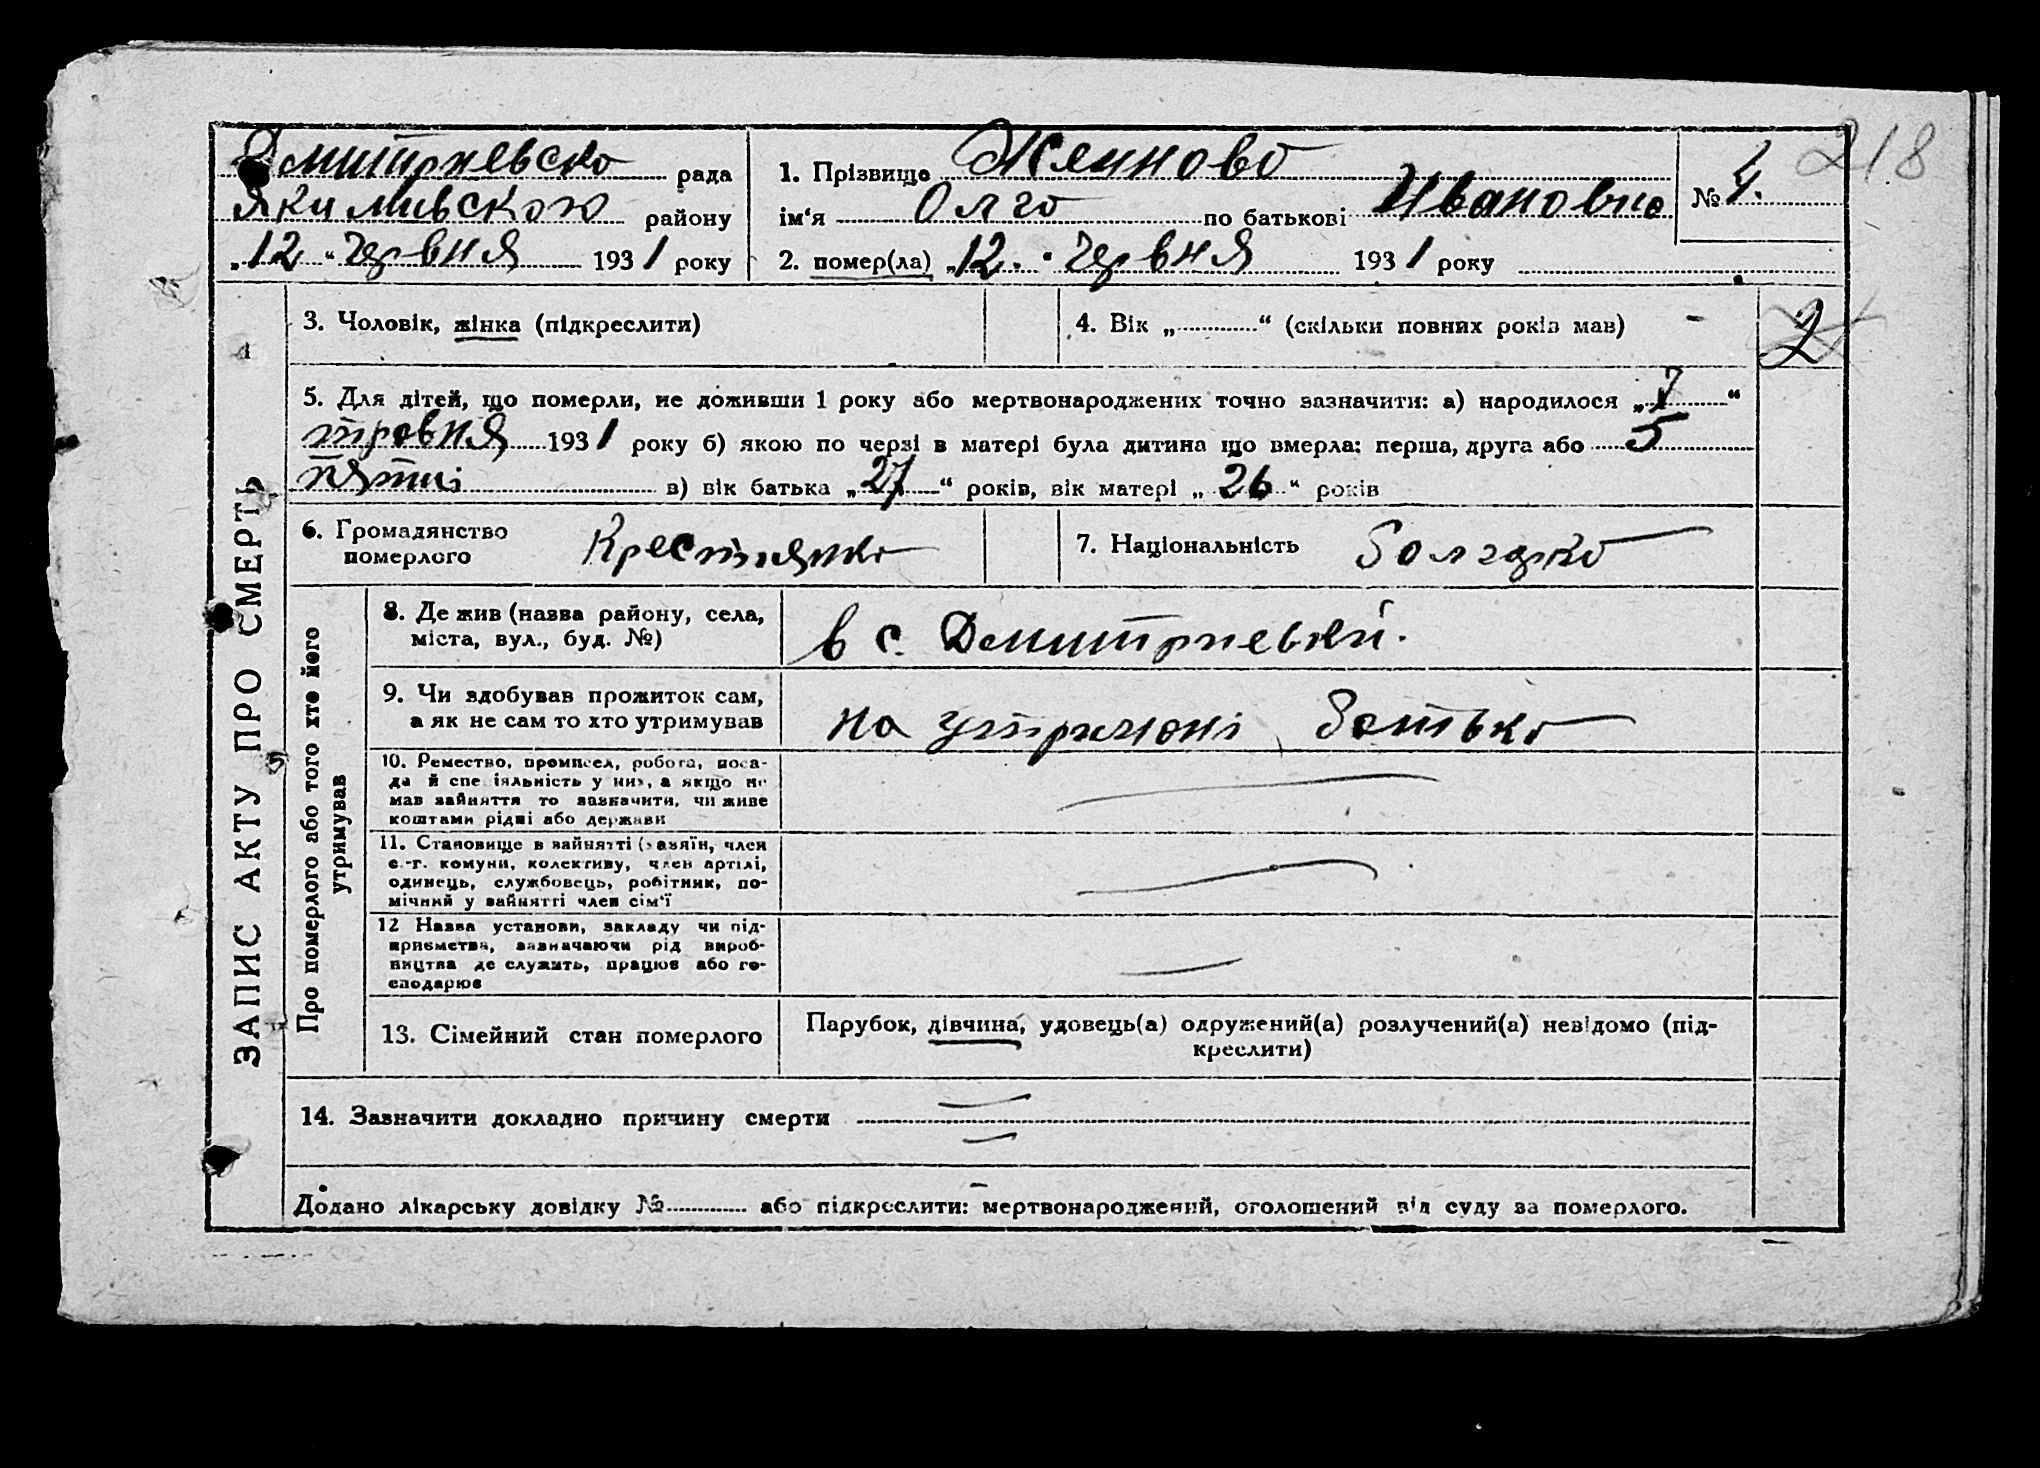 218
Дмитриевска рада
Якимивского району
„12“ червня 1931 року
1. Прізвище Жеинова
ім‘я Олга по батькові Ивановна
№ 4.
2. помер(ла) „12.“ червня 1931 року
ЗАПИС АКТУ ПРО СМЕРТЬ
3. Чоловік, жінка (підкреслити)
4. Вік „............“ (скільки повних років мав) -
2
5. Для дітей, що померли, не доживши 1 року або мертвонароджених точно зазначити: а) народилося „7“
травня 1931 року б) якою по черзі в матері була дитина що вмерла: перша, друга або 5
пятиі в) вік батька „27“ років, вік матері „26“ років
6. Громадянство
померлого
Крестиянка
7. Національність Болгарка
Про померлого або того хто його
утримував
8. Де жив (назва району, села,
міста, вул., буд. №)
в с. Дмитриевки.
9. Чи здобував прожиток сам,
а як не сам то хто утримував
на утримані батька
10. Ремество, промисел, робота, поса-
да й спеціяльність у них, а якщо не
мав зайняття то зазначити, чи живе
коштами рідні або держави
11. Становище в зайнятті (хазяїн, член
с.-г. комуни, колективу, член артілі,
одинець, службовець, робітник, по-
мічний у зайнятті член сім‘ї
12 Назва установи, закладу чи під-
приємства, зазначаючи рід вироб-
ництва де служить, працює або го-
сподарює
13. Сімейний стан померлого
Парубок, дівчина, удовець(а) одружений(а) розлучений(а) невідомо (під-
креслити)
14. Зазначити докладно причину смерти
Додано лікарську довідку №............ або підкреслити: мертвонароджений, оголошений від суду за померлого.